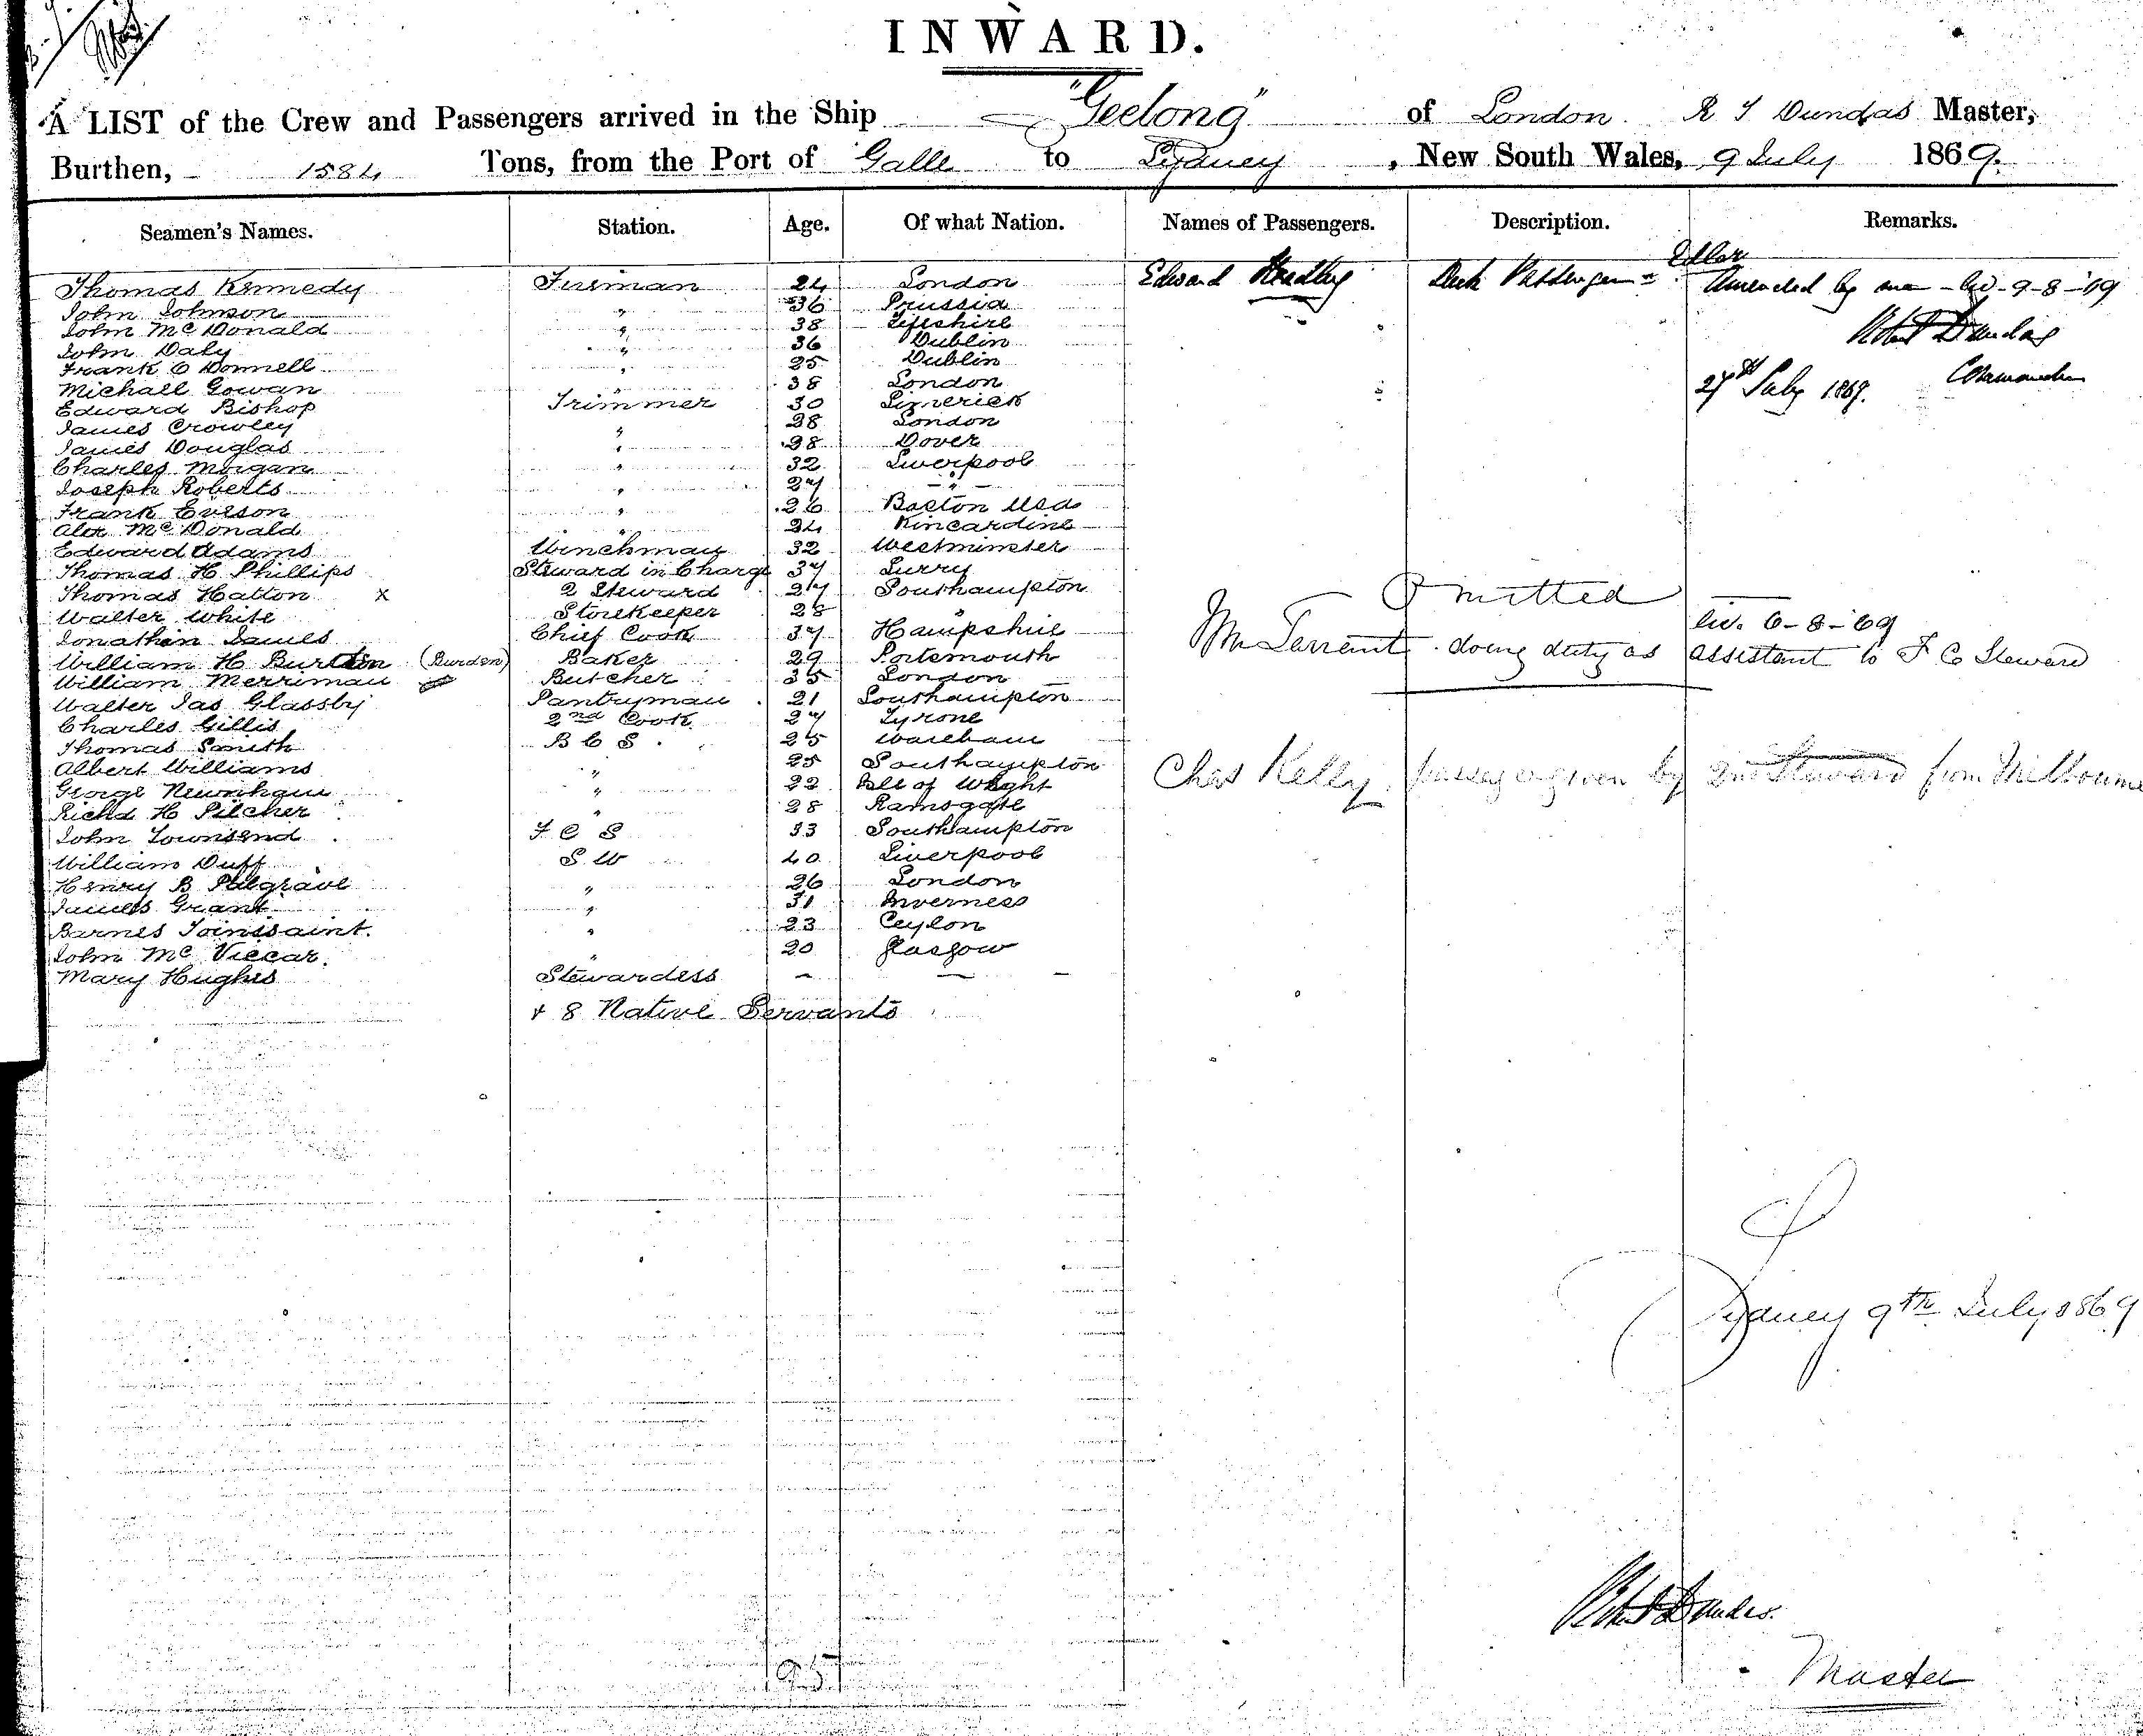 INWARD.
A LIST of the Crew and Passengers arrived in the Ship "Geelong" of London R S Dundas Master,
Burthen, 1584 Tons, from the Port of Galle to Sydney, New South Wales, 9 July 1869.
Seamen's Names. Station. Age. Of what Nation. Names of Passengers. Description. Remarks.
Thomas Kennedy Fireman 24 London Edward Deck Passenger
John Johnson " 36 Prussia Amended by me 9-8-'69
John McDonald " 38 Fifeshire Robert Dundas
John Daly " 36 Dublin
Frank O Donnell " 25 Dublin Commander
Michall Gowan " 38 London 27th July 1869.
Edward Bishop Trimmer 30 Limerick
James Crowley " 28 London
James Douglas " 28 Dover
Charles Morgan " 32 Liverpool
Joseph Roberts " 27 "
Frank Everson " 26 Boston Usa
Alex McDonald " 24 Kincardine
Edward Adams Winchman 32 Westminster
Thomas H Phillips Steward in Charge 37 Surry
Thomas Hatton x 2 Steward 27 Southampton Omitted
Walter White Storekeeper 28 " 6-8-'69
Jonathan James Chief Cook 37 Hampshire Wm Tarrant doing duty as assistant to F C Steward
William H Burden (Burden) Baker 29 Portsmouth
William Merriman Butcher 35 London
Walter Jas Glassby Pantryman 21 Southampton
Charles Gillis 2nd Cook 27 Tyrone
Thomas Smith B C S 25 Wareham
Albert Williams " 25 Southampton Chas Kelly passenger given by 2nd Steward from Melbourne
George Newnham " 22 Isle of Wight
Richd H Pilcher " 28 Ramsgate
John Townsend F C S 33 Southampton
William Duff S W 40 Liverpool
Henry B Palgrave " 26 London
James Grant " 31 Inverness
Barnes Toinssaint. " 23 Ceylon
John Mc Viccar. " 20 Glasgow
Mary Hughes Stewardess - - -
+ 8 Native Servants
Sydney 9th July 1869
Robert Dundas.
Master
95